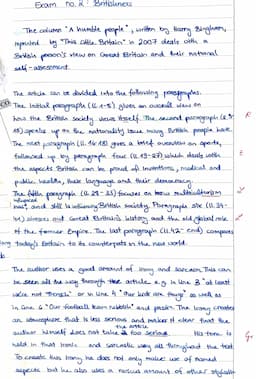 Exam no. 2: Britishness
The column "A humble people", written by Harry Bingham,
reprinted by "This Little Britain" in 2007 deals with a
British person's view on Great Britain and their national
self-assessment.
The article can be divided into the following paragraphs.
The initial paragraph (ll. 1-8) gives an overall view on
how the British society views itself. The second paragraph (ll. 9-
15) speaks up on the nationality issue many British people have.
The next paragraph (ll. 16-18) gives a brief overview on sports,
followed up by paragraph four (ll. 19-27) which deals with
the aspects Britain can be proud of: inventions, medical and
public wealths, their language and their democracy.
The fifth paragraph (ll. 28-33) focuses on how multiculturism
has, and still is influencing British society. Paragraph six (ll. 34-
41) shows Great Britain's history and the old global role
of the former Empire. The last paragraph (ll. 42-end) compares
today's Britain to its counterparts in the new world.
b
The author uses a good amount of irony and sarcasm. This can
be seen all the way through the article e.g. in line 3 "at least
we're not things" or in line 4 "Our kids are things" as well as
in line 6 "Our football team rubbish" and posh. The irony creates
an atmosphere that is less serious and makes it clear that the
author himself does not take the article too serious. His tone is
held in that ironic and sarcastic way all throughout the text.
To create this irony he does not only make use of named
aspects but he also uses a various amount of other stylistic